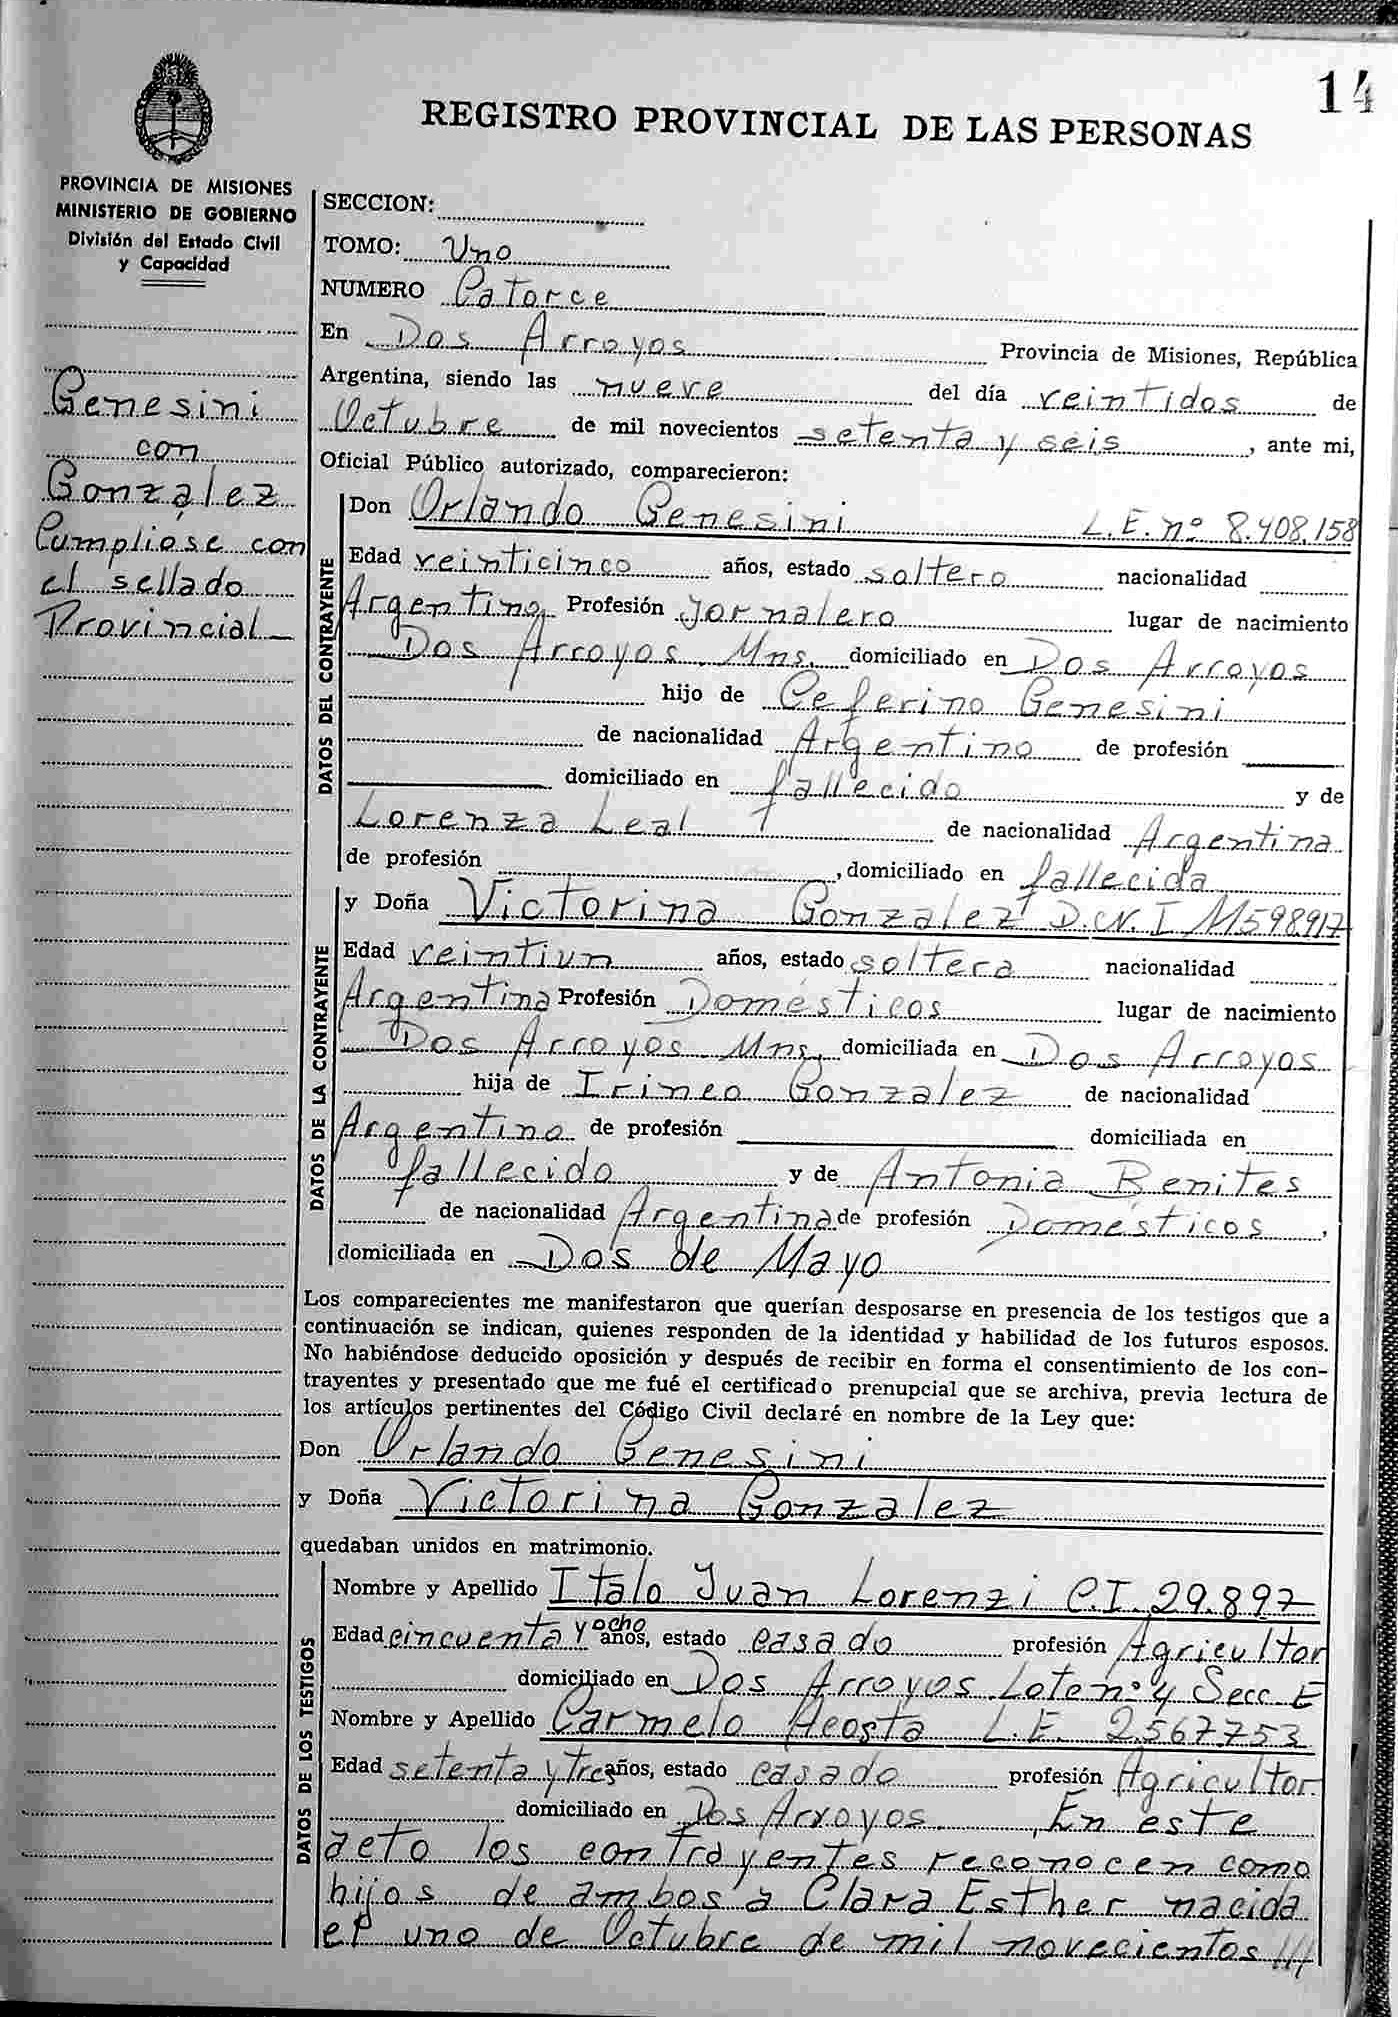 14
REGISTRO PROVINCIAL DE LAS PERSONAS
PROVINCIA DE MISIONES
MINISTERIO DE GOBIERNO
División del Estado Civil
y Capacidad
Genesini
con
Gonzalez
Cumpliose con
el sellado
Provincial
SECCION:
TOMO: Uno
NUMERO Catorce
En Dos Arroyos Provincia de Misiones, República
Argentina, siendo las nueve del día veintidos de
Octubre de mil novecientos setenta y seis, ante mi,
Oficial Público autorizado, comparecieron:
DATOS DEL CONTRAYENTE
Don Orlando Genesini L.E. nº 8.408.158
Edad veinticinco años, estado soltero nacionalidad
Argentino Profesión Jornalero lugar de nacimiento
Dos Arroyos Mns. domiciliado en Dos Arroyos
hijo de Ceferino Genesini
de nacionalidad Argentino de profesión
domiciliado en fallecido y de
Lorenza Leal de nacionalidad Argentina
de profesión , domiciliado en fallecida
DATOS DE LA CONTRAYENTE
y Doña Victorina Gonzalez D.N.I 11598917
Edad veintiun años, estado soltera nacionalidad
Argentina Profesión Domésticos lugar de nacimiento
Dos Arroyos Mns. domiciliada en Dos Arroyos
hija de Irineo Gonzalez de nacionalidad
Argentino de profesión domiciliada en
fallecido y de Antonia Benites
de nacionalidad Argentina de profesión Domésticos,
domiciliada en Dos de Mayo
Los comparecientes me manifestaron que querían desposarse en presencia de los testigos que a
continuación se indican, quienes responden de la identidad y habilidad de los futuros esposos.
No habiéndose deducido oposición y después de recibir en forma el consentimiento de los con-
trayentes y presentado que me fué el certificado prenupcial que se archiva, previa lectura de
los artículos pertinentes del Código Civil declaré en nombre de la Ley que:
Don Orlando Genesini
y Doña Victorina Gonzalez
quedaban unidos en matrimonio.
DATOS DE LOS TESTIGOS
Nombre y Apellido Italo Juan Lorenzi C.I. 29.897
Edad cincuenta y ocho años, estado casado profesión Agricultor
domiciliado en Dos Arroyos Lote nº 4 Secc. E
Nombre y Apellido Carmelo Acosta L.E. 2.567.753
Edad setenta y tres años, estado casado profesión Agricultor
domiciliado en Dos Arroyos. En este
acto los contrayentes reconocen como
hijos de ambos a Clara Esther nacida
el uno de Octubre de mil novecientos ///